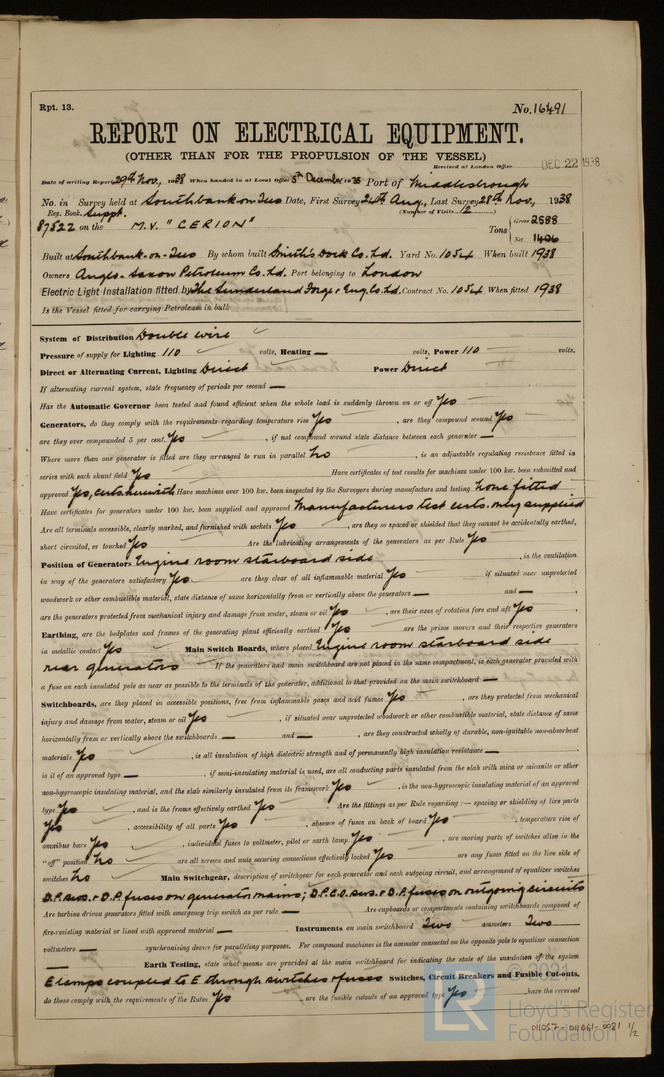 Rpt. 13.
No. 16491
REPORT ON ELECTRICAL EQUIPMENT.
(OTHER THAN FOR THE PROPULSION OF THE VESSEL)
Received at London Office DEC 22 1938
Date of writing Report 29th Nov., 1938 When handed in at Local Office 5th December 1938 Port of Middlesbrough
No. in Survey held at Southbank on Tees Date, First Survey 24th Aug., Last Survey 28th Nov., 1938
Reg. Book. Suppt. (Number of Visits 12)
87522 on the M.V. "CERION" Tons Gross 2588
Net 1406
Built at Southbank-on-Tees By whom built Smith's Dock Co. Ld. Yard No. 1054 When built 1938
Owners Anglo-Saxon Petroleum Co. Ld. Port belonging to London
Electric Light Installation fitted by The Sunderland Forge & Eng. Co. Ld. Contract No. 1054 When fitted 1938
Is the Vessel fitted for carrying Petroleum in bulk
System of Distribution Double wire
Pressure of supply for Lighting 110 volts, Heating — volts, Power 110 volts,
Direct or Alternating Current, Lighting Direct Power Direct
If alternating current system, state frequency of periods per second —
Has the Automatic Governor been tested and found efficient when the whole load is suddenly thrown on or off Yes
Generators, do they comply with the requirements regarding temperature rise Yes, are they compound wound Yes
are they over compounded 5 per cent. Yes, if not compound wound state distance between each generator —
Where more than one generator is fitted are they arranged to run in parallel No, is an adjustable regulating resistance fitted in
series with each shunt field Yes Have certificates of test results for machines under 100 kw. been submitted and
approved Yes, certs. herewith Have machines over 100 kw. been inspected by the Surveyors during manufacture and testing None fitted
Have certificates for generators under 100 kw. been supplied and approved Manufacturers test certs. only supplied
Are all terminals accessible, clearly marked, and furnished with sockets Yes, are they so spaced or shielded that they cannot be accidentally earthed,
short circuited, or touched Yes Are the lubricating arrangements of the generators as per Rule Yes
Position of Generators Engine room starboard side, is the ventilation
in way of the generators satisfactory Yes are they clear of all inflammable material Yes if situated near unprotected
woodwork or other combustible material, state distance of same horizontally from or vertically above the generators — and —,
are the generators protected from mechanical injury and damage from water, steam or oil Yes, are their axes of rotation fore and aft Yes,
Earthing, are the bedplates and frames of the generating plant efficiently earthed Yes are the prime movers and their respective generators
in metallic contact Yes Main Switch Boards, where placed Engine room starboard side
near generators If the generators and main switchboard are not placed in the same compartment, is each generator provided with
a fuse on each insulated pole as near as possible to the terminals of the generator, additional to that provided on the main switchboard —
Switchboards, are they placed in accessible positions, free from inflammable gases and acid fumes Yes, are they protected from mechanical
injury and damage from water, steam or oil Yes, if situated near unprotected woodwork or other combustible material, state distance of same
horizontally from or vertically above the switchboards — and —, are they constructed wholly of durable, non-ignitable non-absorbent
materials Yes, is all insulation of high dielectric strength and of permanently high insulation resistance —,
is it of an approved type —, if semi-insulating material is used, are all conducting parts insulated from the slab with mica or micanite or other
non-hygroscopic insulating material, and the slab similarly insulated from its framework Yes, is the non-hygroscopic insulating material of an approved
type Yes, and is the frame effectively earthed Yes Are the fittings as per Rule regarding:— spacing or shielding of live parts
Yes, accessibility of all parts Yes, absence of fuses on back of board Yes, temperature rise of
omnibus bars Yes, individual fuses to voltmeter, pilot or earth lamp Yes, are moving parts of switches alive in the
"off" position No are all screws and nuts securing connections effectively locked Yes are any fuses fitted on the live side of
switches No Main Switchgear, description of switchgear for each generator and each outgoing circuit, and arrangement of equaliser switches
D.P. sws. & D.P. fuses on generator mains; D.P.C.O. sws. & D.P. fuses on outgoing circuits
Are turbine driven generators fitted with emergency trip switch as per rule — Are cupboards or compartments containing switchboards composed of
fire-resisting material or lined with approved material — Instruments on main switchboard Two ammeters Two
voltmeters — synchronising device for paralleling purposes. For compound machines is the ammeter connected on the opposite pole to equaliser connection
— Earth Testing, state what means are provided at the main switchboard for indicating the state of the insulation of the system
E lamps coupled to E through switches & fuses Switches, Circuit Breakers and Fusible Cut-outs,
do these comply with the requirements of the Rules Yes, are the fusible cutouts of an approved type Yes, have the reversed
LR
© 2021
Lloyd's Register
Foundation
011057-011061-0081 1/2